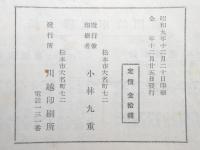 昭和九年十二月二十日印刷
仝 年十二月廿五日發行
定價 金拾錢
松本市大名町七二
發行兼印刷者 小林九重
松本市大名町七二
發行所 川越印刷所
電話一三一番